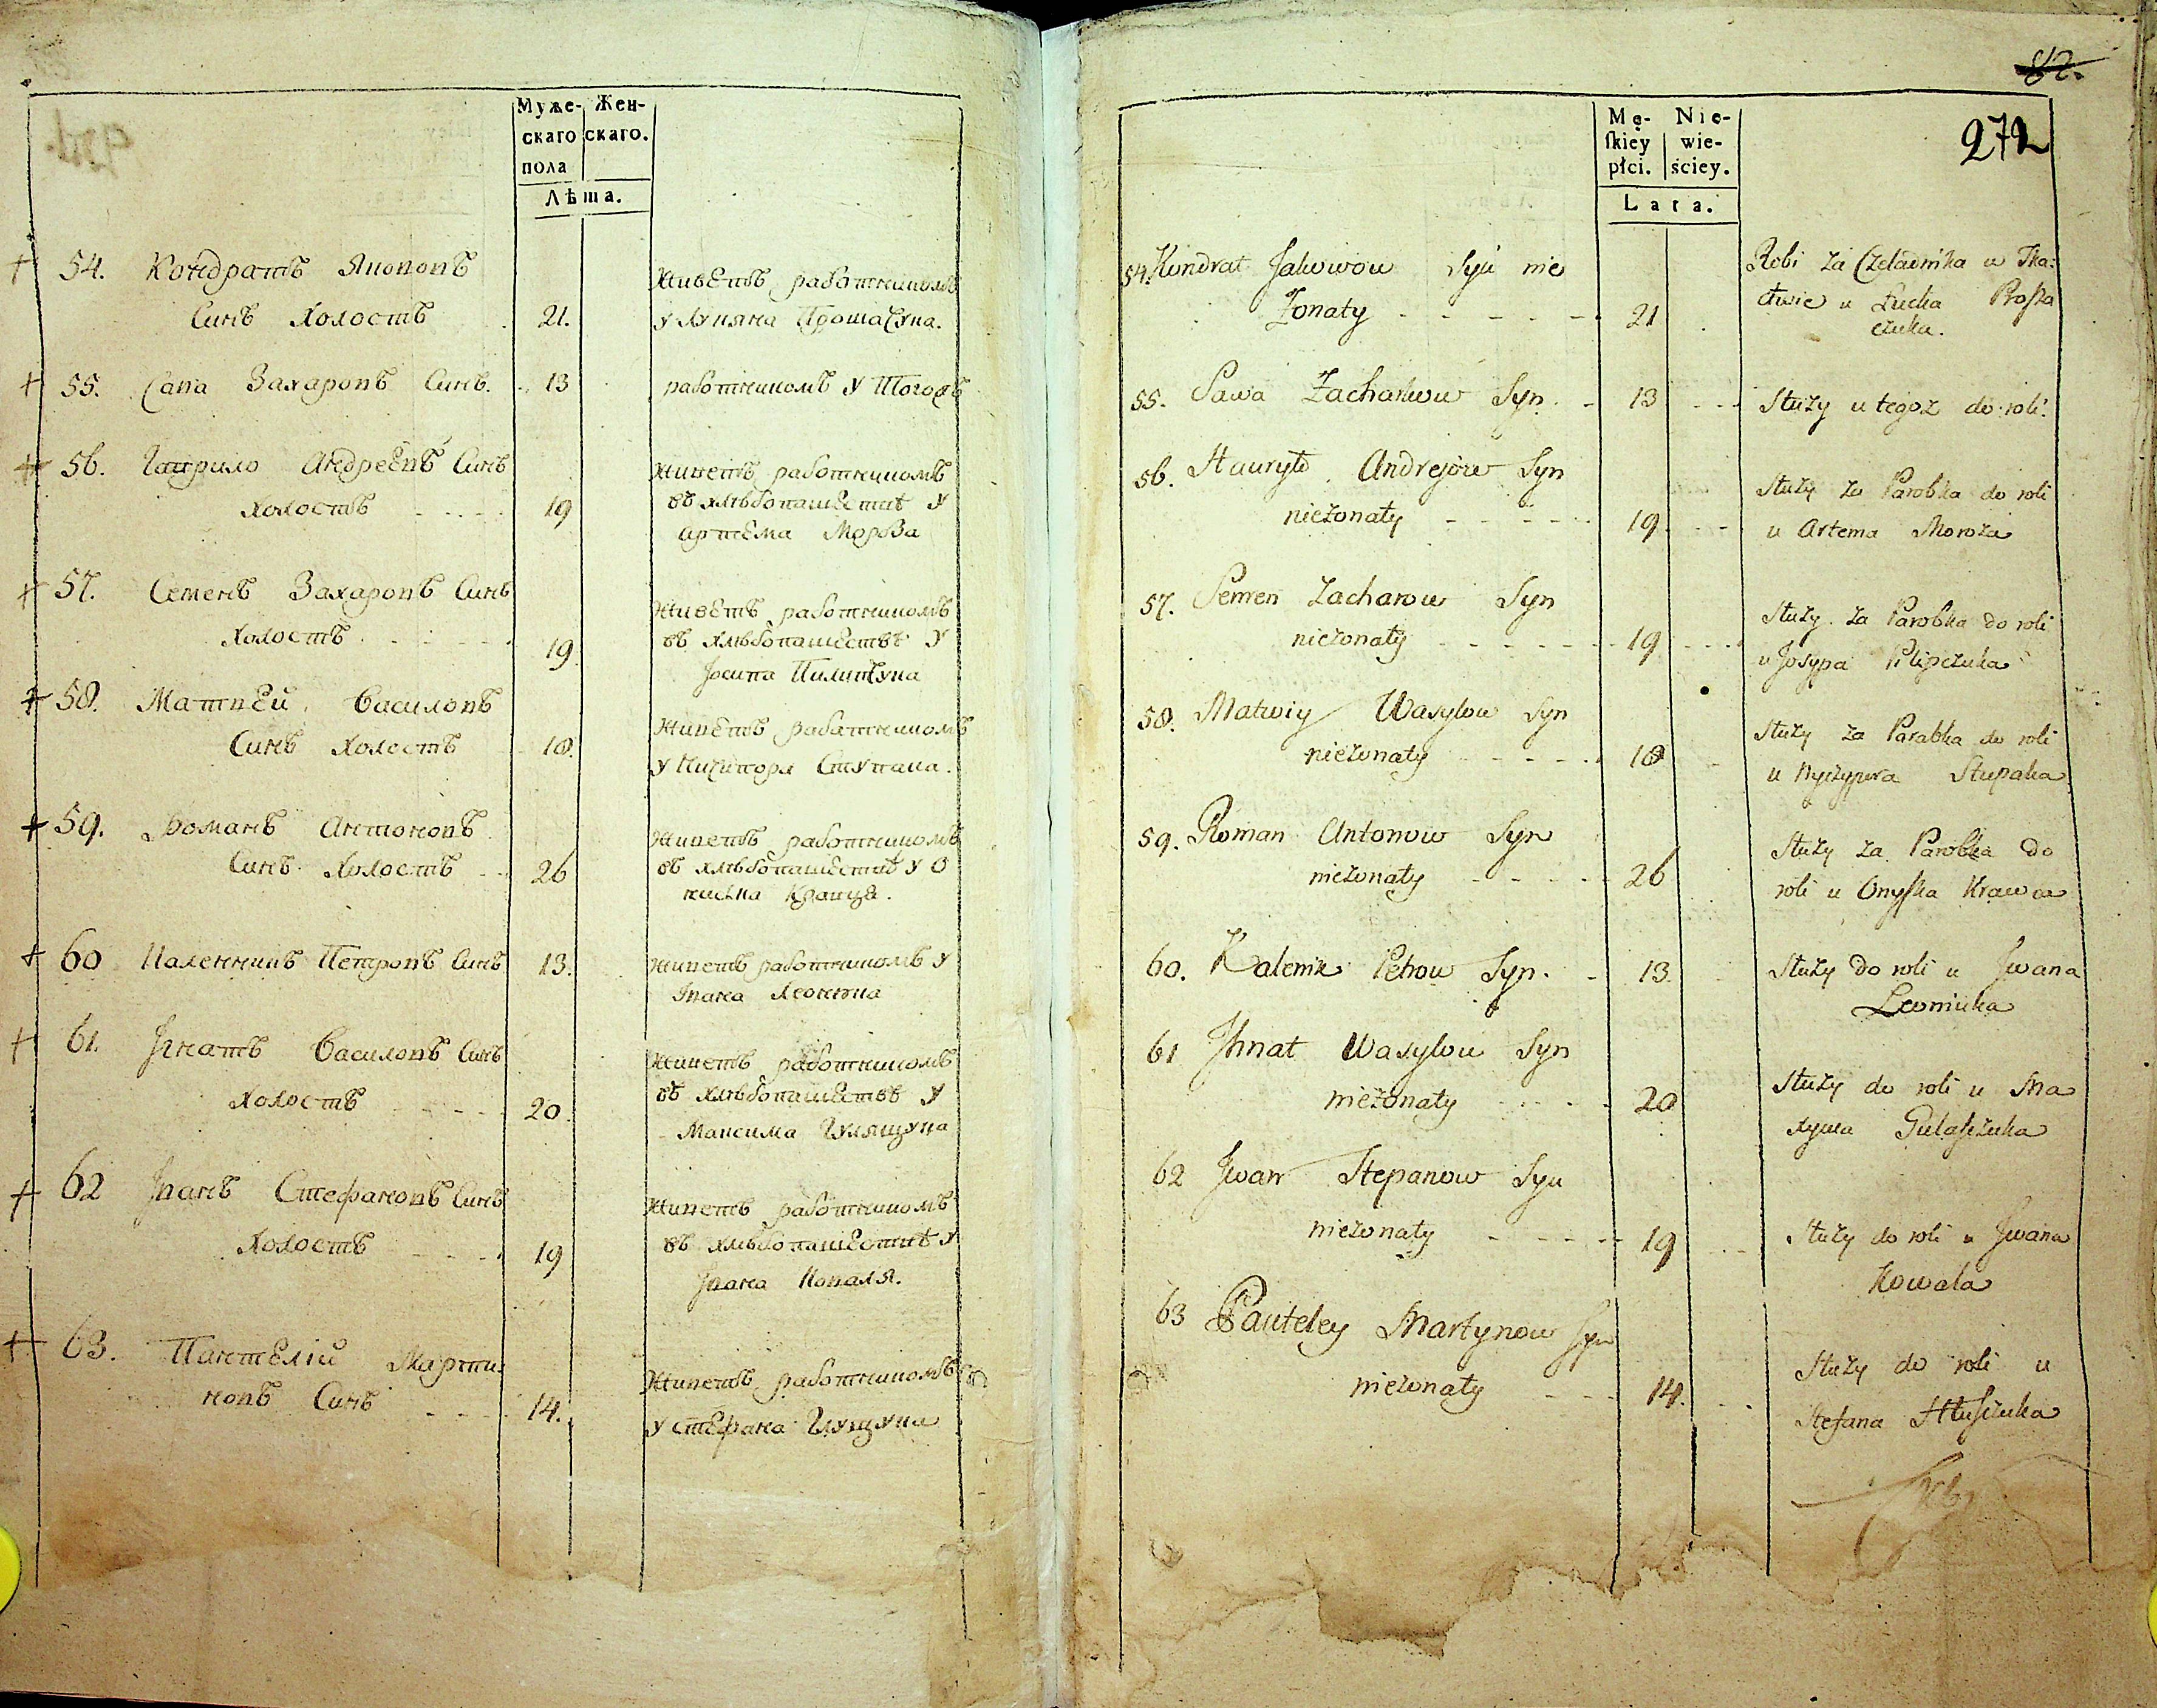 Муже- Жен-
скаго скаго.
пола
Лѣта.
54. Кондратъ Якововъ
Синъ Холостъ 21.
Живетъ работникомъ
у Лукяна Прошачука.
55. Сава Захаровъ Синъ. 13
работникомъ у Тогожъ
56. Гаврило Андреевъ Синъ
Холостъ 19
живетъ работникомъ
въ хлѣбопашествѣ у
Артема Мороза
57. Семенъ Захаровъ Синъ
Холостъ 19
Живетъ работникомъ
въ хлѣбопашествѣ у
Iосипа Пилипчука
58. Матвей Василовъ
Синъ Холостъ 18
Живетъ работникомъ
у Ничипора Ступака.
59. Романъ Антоновъ
Синъ Холостъ 26
живетъ работникомъ
въ хлѣбопашествѣ у О
ниська Кравца.
60 Каленникъ Петровъ Синъ 13.
живетъ работникомъ у
Iвана Леонюка
61. Iгнатъ Василовъ Синъ
Холостъ 20
живетъ работникомъ
въ хлѣбопашествѣ у
Максима Гулящука
62 Iванъ Стефановъ Синъ
Холостъ 19
живетъ работникомъ
въ хлѣбопашествѣ у
Iвана Коваля.
63. Пантелiй Марти
новъ Синъ 14.
Живетъ работникомъ
у Стефана Глущука
82.
272
Mę- Nie-
ſkiey wie-
płci. ściey.
Lata.
54. Kondrat Jakowow Syn nie
Żonaty 21
Robi za Czeladnika w Tka:
ctwie u Łucka Proſza
czuka.
55. Sawa Zacharow Syn. 13
Służy u tegoż do roli.
56. Hawryło Andrejow Syn
nieżonaty 19
Służy za Parobka do roli
u Artema Moroza
57. Semen Zacharow Syn
nieżonaty 19
Służy za Parobka do roli
u Josypa Pilipczuka
58. Matwiy Wasylow Syn
nieżonaty 18
Służy za Parobka do roli
u Nyczypora Stupaka
59. Roman Antonow Syn
nieżonaty 26
Służy za Parobka do
roli u Onyſka Krawca
60. Kalenik Petrow Syn. 13
Służy do roli u Jwana
Leoniuka
61 Jhnat Wasylow Syn
nieżonaty 20
Służy do roli u Ma
xyma Gulaſzczuka
62 Jwan Stepanow Syn
nieżonaty 19
Służy do roli u Jwana
Kowala
63 Panteley Martynow Syn
nieżonaty 14.
Służy do roli u
Stefana Hłuſzczuka